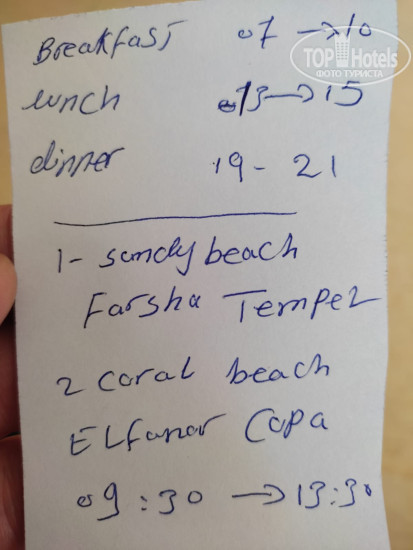 Breakfast 07 → 10
TOP Hotels
ФОТО ТУРИСТА
lunch 13 → 15
dinner 19 - 21
1- sandy beach
Farsha Tempel
2 coral beach
ELfanar Copa
09:30 → 13:30